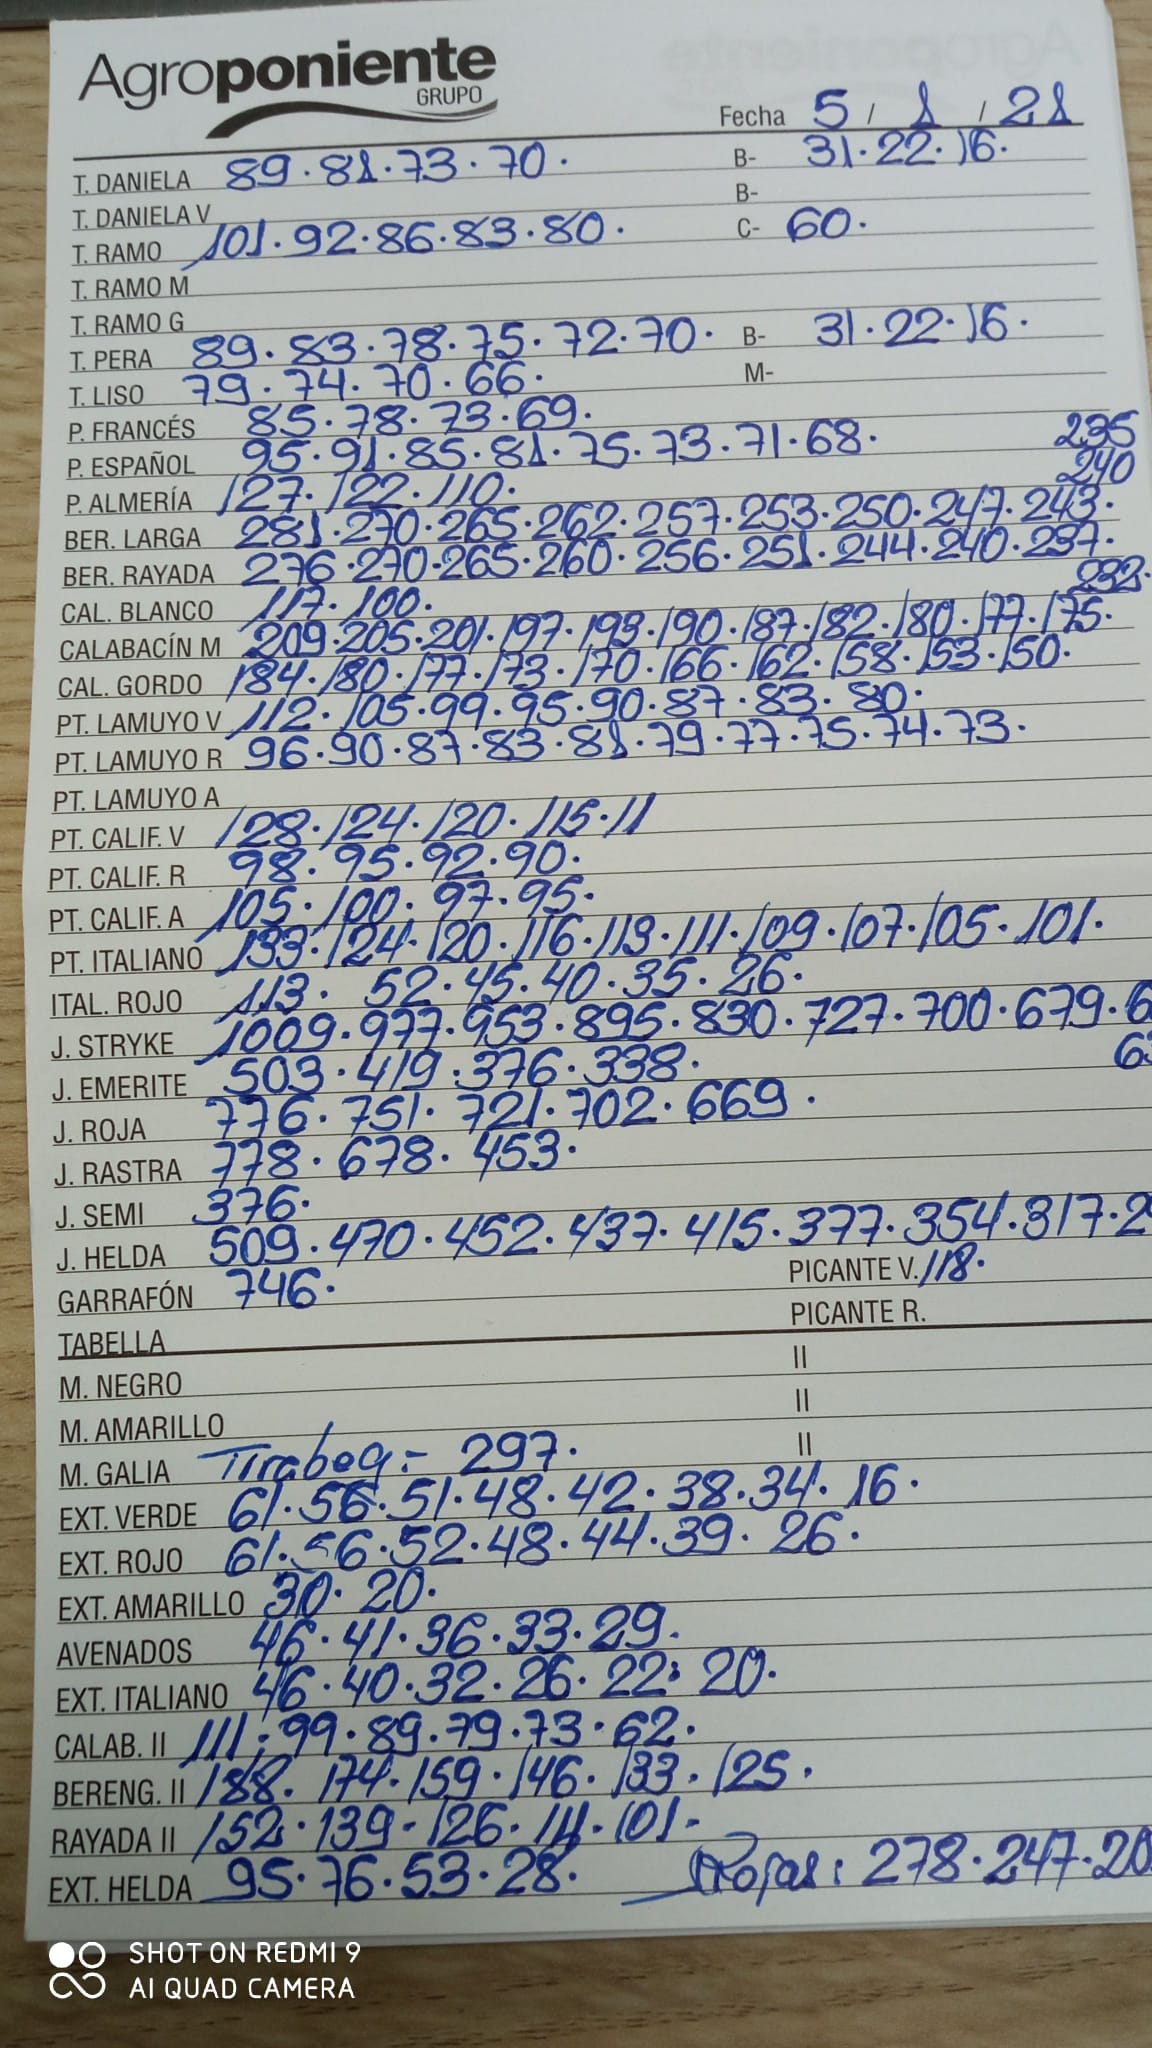 Agroponiente
GRUPO
Fecha 5 / 1 / 21
T. DANIELA 89.81.73.70. B- 31.22.16.
T. DANIELA V B-
T. RAMO 101.92.86.83.80. C- 60.
T. RAMO M
T. RAMO G
T. PERA 89.83.78.75.72.70. B- 31.22.16.
T. LISO 79.74.70.66. M-
P. FRANCÉS 85.78.73.69.
P. ESPAÑOL 95.91.85.81.75.73.71.68. 235
P. ALMERÍA 127.122.110. 240
BER. LARGA 281.270.265.262.257.253.250.247.243.
BER. RAYADA 276.270.265.260.256.251.244.240.237.
CAL. BLANCO 117.100. 232.
CALABACÍN M 209.205.201.197.193.190.187.182.180.177.175.
CAL. GORDO 184.180.177.173.170.166.162.158.153.150.
PT. LAMUYO V 112.105.99.95.90.87.83.80.
PT. LAMUYO R 96.90.87.83.81.79.77.75.74.73.
PT. LAMUYO A
PT. CALIF. V 128.124.120.115.11
PT. CALIF. R 98.95.92.90.
PT. CALIF. A 105.100.97.95.
PT. ITALIANO 133.124.120.116.113.111.109.107.105.101.
ITAL. ROJO 113. 52.45.40.35.26.
J. STRYKE 1009.977.953.895.830.727.700.679.6
J. EMERITE 503.419.376.338. 63
J. ROJA 776.751.721.702.669.
J. RASTRA 778.678.453.
J. SEMI 376.
J. HELDA 509.470.452.437.415.377.354.317.2
GARRAFÓN 746. PICANTE V. 118.
TABELLA PICANTE R.
M. NEGRO II
M. AMARILLO II
M. GALIA Tirabeq.- 297. II
EXT. VERDE 61.56.51.48.42.38.34.16.
EXT. ROJO 61.56.52.48.44.39.26.
EXT. AMARILLO 30.20.
AVENADOS 46.41.36.33.29.
EXT. ITALIANO 46.40.32.26.22.20.
CALAB. II 111.99.89.79.73.62.
BERENG. II 188.174.159.146.133.125.
RAYADA II 152.139.126.111.101.
EXT. HELDA 95.76.53.28. Rojas: 278.247.20
SHOT ON REDMI 9
AI QUAD CAMERA